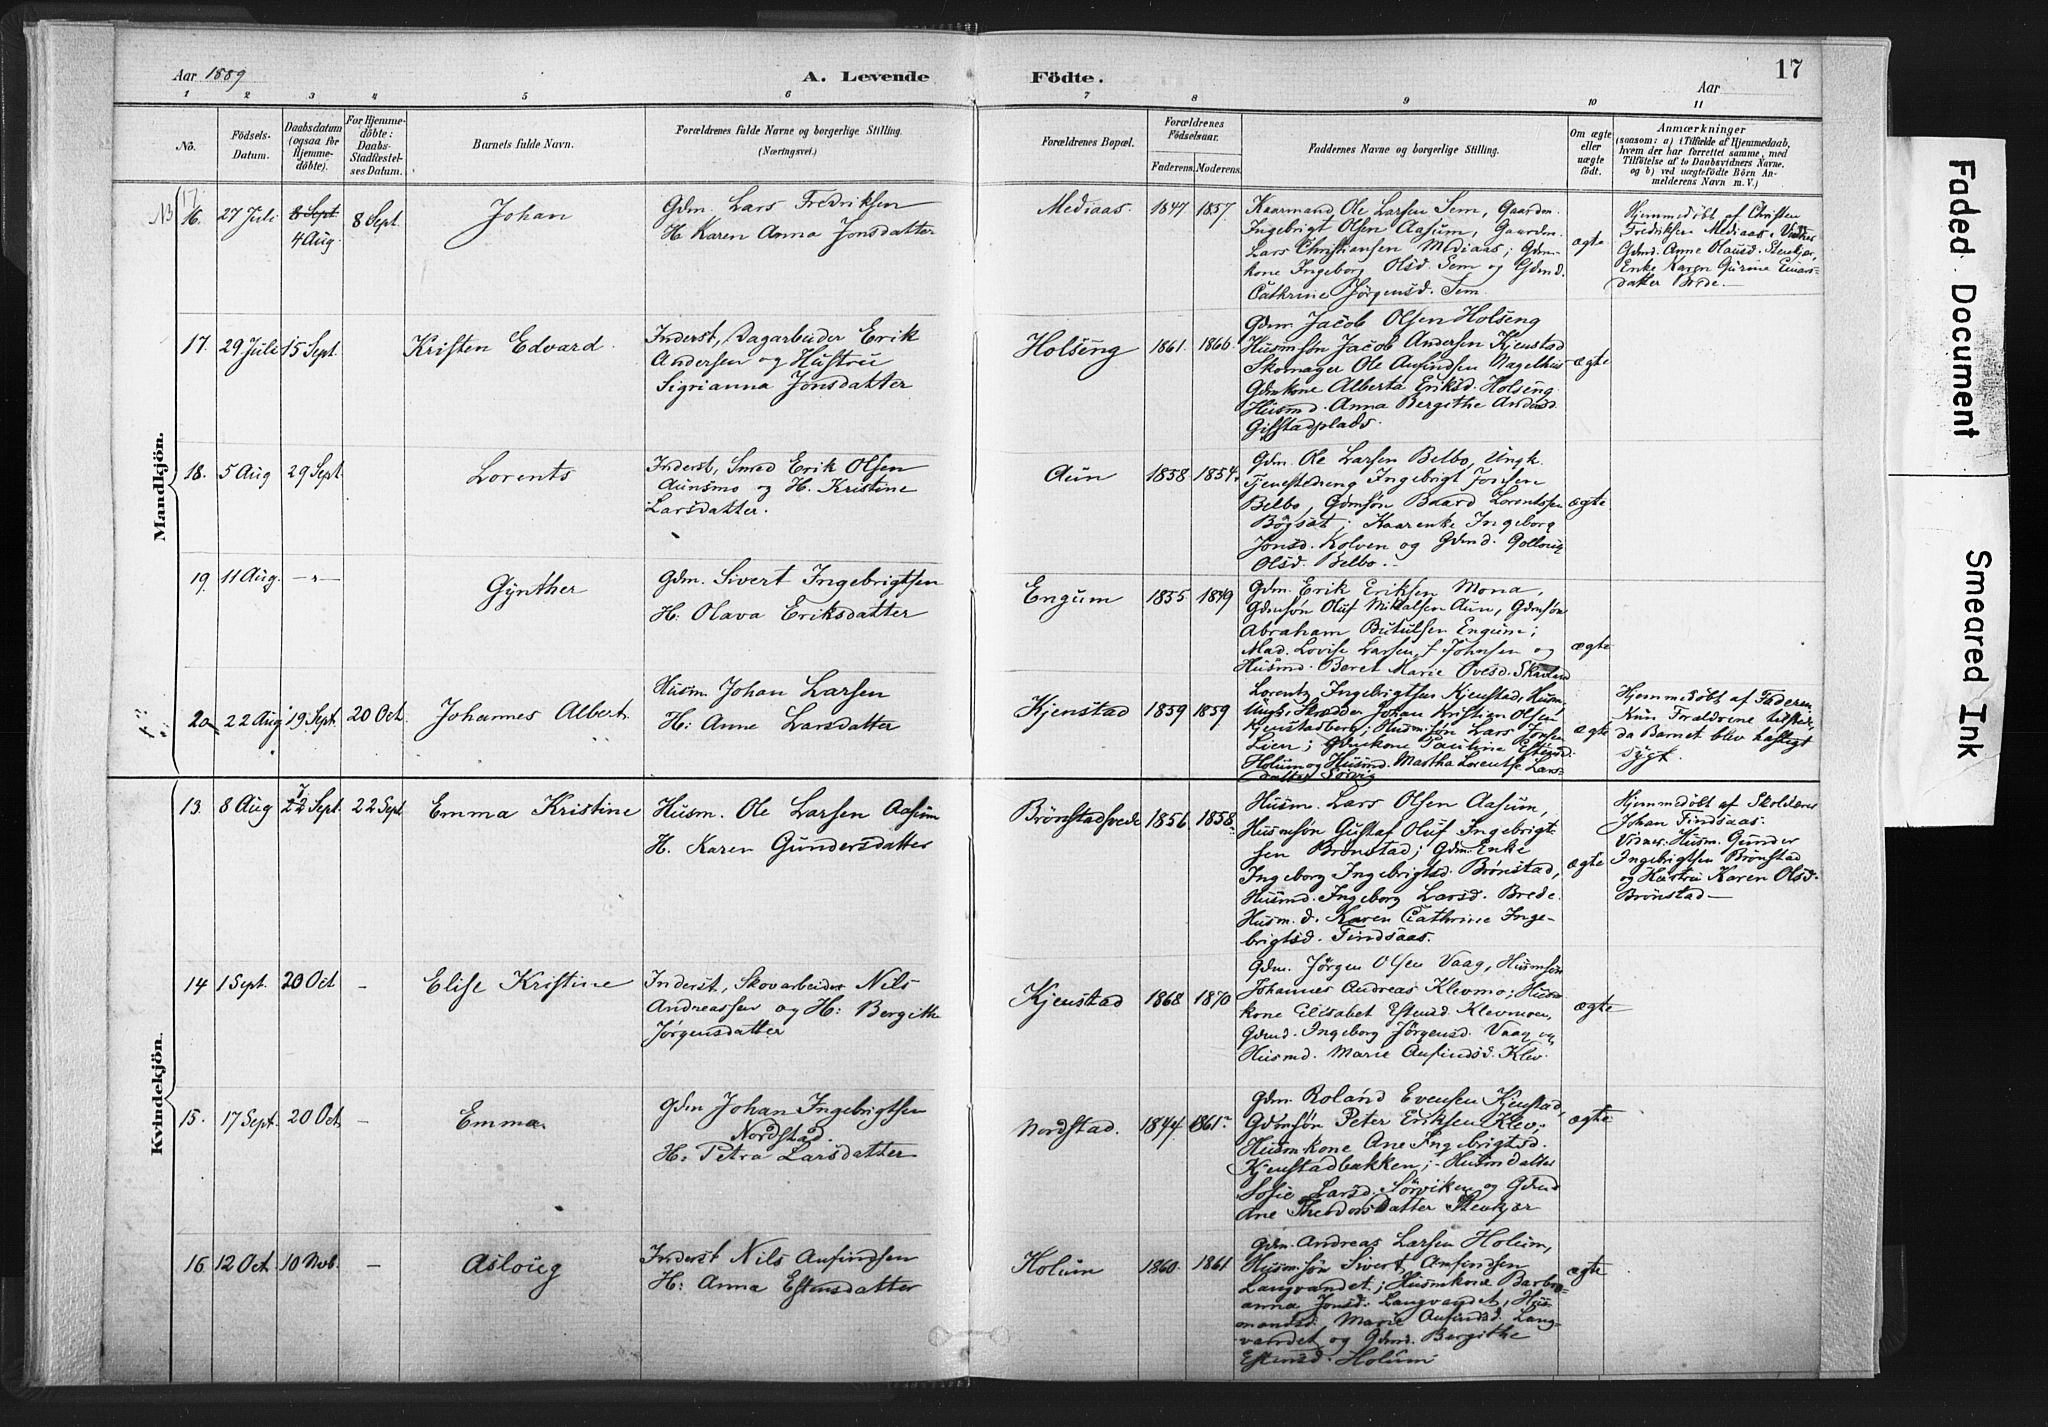 Aar 1889
A. Levende
Födte.
17
Aar
1 2 3 4 5 6 7 8 9 10 11
No.
Födsels-
Datum.
Daabsdatum
(ogsaa for
Hjemme-
døbte).
For Hjemme-
döbte:
Daabs-
Stadfæstel-
ses Datum.
Barnets fulde Navn.
Forældrenes fulde Navne og borgerlige Stilling.
(Næringsvei.)
Forældrenes Bopæl.
Forældrenes
Födselsaar.
Faderens. Moderens.
Faddernes Navne og borgerlige Stilling.
Om ægte
eller
uægte
födt.
Anmærkninger
(saasom: a) i Tilfælde af Hjemmedaab,
hvem der har forrettet samme, med
Tilföielse af to Daabsvidners Navne,
og b) ved uægtefödte Börn An-
melderens Navn m. V.)
Mandkjön.
NB 17
16. 27 Juli 8 Sept 4 Aug. 8 Sept.
Johan
Gdm. Lars Fredriksen
H. Karen Anna Jonsdatter
Mediaas. 1847 1857
Kaarmand Ole Larsen Sem, Gaardm.
Ingebrigt Olsen Aasum, Gaardm.
Lars Christiansen Mediaas; Gdm-
kone Ingeborg Olsd. Sem og Gdmd.
Cathrine Jörgensd. Sem.
ægte
Hjemmedöbt af Christen
Fredriksen Mediaas. Vidner
Gdmd. Anne Olausd. Stenkjær,
Enke Karen Gurine Einars-
datter Brede.
17. 29 Juli 15 Sept.
Kristen Edvard.
Inderst, Dagarbeider Erik
Andersen og Hustru
Sigrianna Jonsdatter
Holseng 1861. 1866.
Gdm. Jacob Olsen Holseng
Husmsön Jacob Andersen Kjenstad
Skomager Ole Anfindsen Nagelhus
Gdmkone Alberta Eriksd. Holseng
Husmd. Anna Bergithe Andersd.
Gifstadplads.
ægte
18. 5 Aug 29 Sept
Lorents
Inderst, Smed Erik Olsen
Aunsmo og H. Kristine
Larsdatter.
Aun 1858 1854.
Gdm. Ole Larsen Belbo, Ungk.
Tjenestedreng Ingebrigt Jonsen
Belbo, Gdmsön Baard Lorentsen
Bögsat; Kaarenke Ingeborg
Jonsd. Kolven og Gdmd. Gollaug
Olsd. Belbo.
ægte
19. 11 Aug. — " —
Gynther
Gdm. Sivert Ingebrigtsen
H: Olava Eriksdatter
Engum 1855. 1849
Gdm. Erik Eriksen Mona,
Gdmsön Oluf Mikkalsen Aun, Gdmsön
Abraham Butulsen Engum;
Mad. Lovise Larsen, f. Johnsen og
Husmd. Beret Marie Ovesd. Skavland
ægte
20. 22 Aug 19 Sept. 20 Oct.
Johannes Albert
Husm. Johan Larsen
H: Anne Larsdatter
Kjenstad 1859 1859
Lorentz Ingebrigtsen Kjenstad, Husm.
Ungk. Skrædder Johan Kristian Olsen
Kjenstadberg; Husm.sön Lars Jonsen
Lien; Gdmkone Pauline Estensd.
Holum og Husmd. Martha Lorentse Lars-
datter Sörvig
ægte
Hjemmedöbt af Faderen,
Kun Forældrene tilstede,
da Barnet blev hastigt
sygt.
Kvindekjön.
13. 8 Aug 22 Sept. 22 Sept
Emma Kristine
Husm. Ole Larsen Aasum
H. Karen Gundersdatter
Brönstadsvede 1856 1858.
Husm. Lars Olsen Aasum,
Husmsön Gustaf Oluf Ingebrigt-
sen Brönstad; Gdm.Enke
Ingeborg Ingebrigtsd. Brönstad,
Husmd. Ingeborg Larsd. Brede.
Husm.d. Karen Cathrine Inge-
brigtsd. Findsaas.
ægte
Hjemmedöbt af Skolelærer
Johan Findsaas.
Vidner: Husm. Gunder
Ingebrigtsen Brönstad
og Hustru Karen Olsd.
Brönstad—
14 1 Sept. 20 Oct —
Elise Kristine
Inderst, Skovarbeider Nils
Andreassen og H: Bergithe
Jörgensdatter
Kjenstad 1868 1870
Gdm. Jörgen Olsen Vaag, Husmsön
Johannes Andreas Klevmo; Husm-
kone Elisabet Estensd. Klevmoen,
Gdmd. Ingeborg Jörgensd. Vaag og
Husmd. Marie Anfindsd. Klev.
ægte
15. 17 Sept. 20 Oct. —
Emma.
Gdm Johan Ingebrigtsen
Nordstad.
H: Petra Larsdatter
Nordstad. 1844 1861
Gdm. Roland Evensen Kjenstad,
Gdmsön Peter Eriksen Klev;
Husmkone Ane Ingebrigtsd.
Kjenstadbakken; Husmdatter
Sofie Larsd. Sörviken og Gdmd
Ane Theodorsdatter Stenkjær
ægte
16. 12 Oct. 10 Nvb. —
Asloug
Inderst Nils Anfindsen
H: Anna Estensdatter
Holum 1860. 1861
Gdm. Andreas Larsen Holum,
Husm.sön Sivert Anfindsen
Langvandet; Husmkone Barbro-
anna Jonsd. Langvandet, Hus-
mandsd. Marie Anfindsd. Lang-
vandet og Gdmd. Bergithe
Estensd. Holum
ægte
Faded Document
Smeared Ink